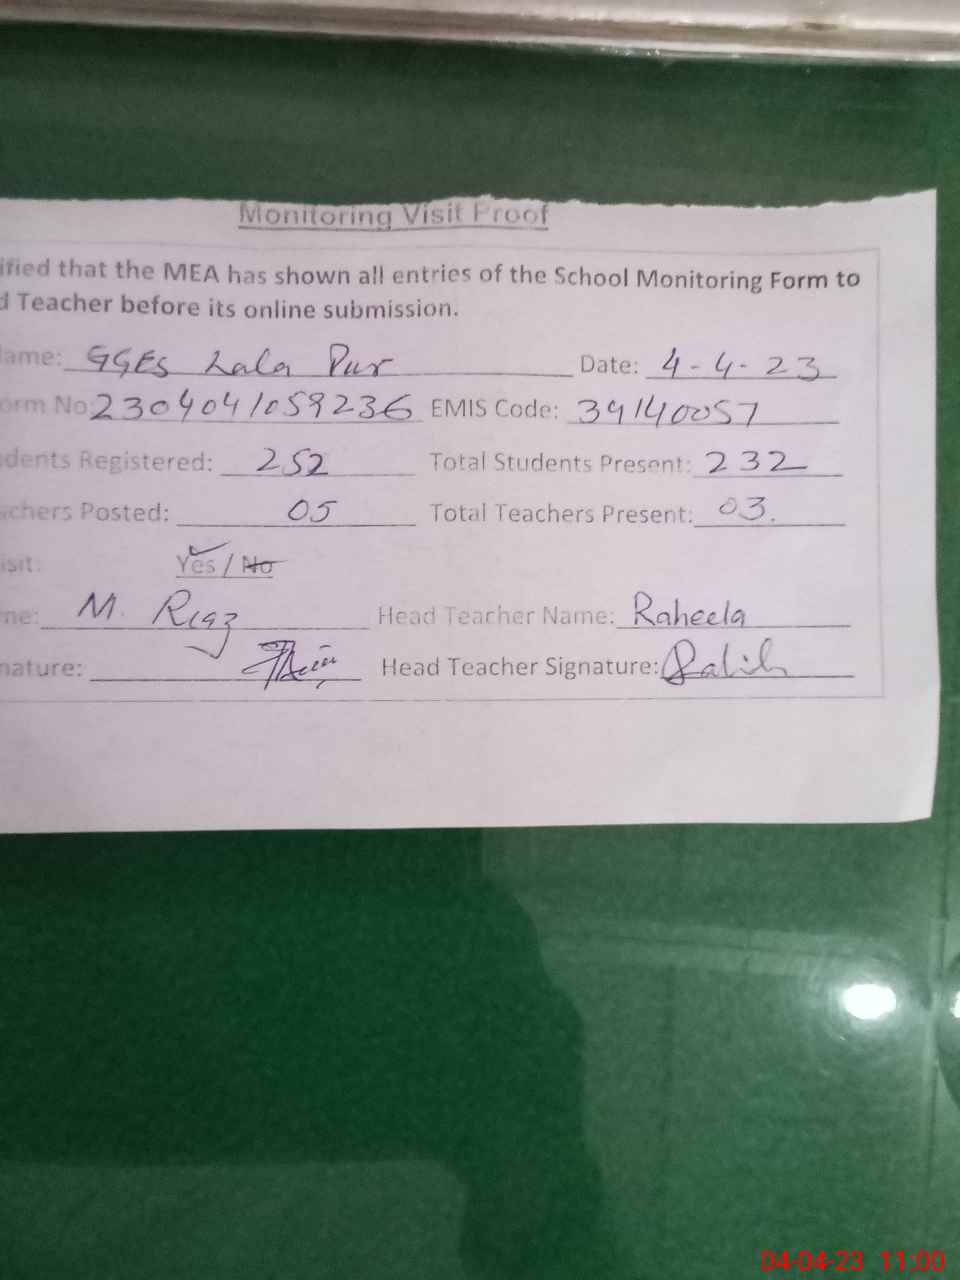 Monitoring Visit Proof
ified that the MEA has shown all entries of the School Monitoring Form to
d Teacher before its online submission.
ame: GGES Lala Pur Date: 4-4-23
orm No: 2304041059236 EMIS Code: 39140057
dents Registered: 252 Total Students Present: 232
chers Posted: 05 Total Teachers Present: 03.
isit: Yes / No
me: M. Riaz Head Teacher Name: Raheela
nature: Head Teacher Signature:
04-04-23 11:00